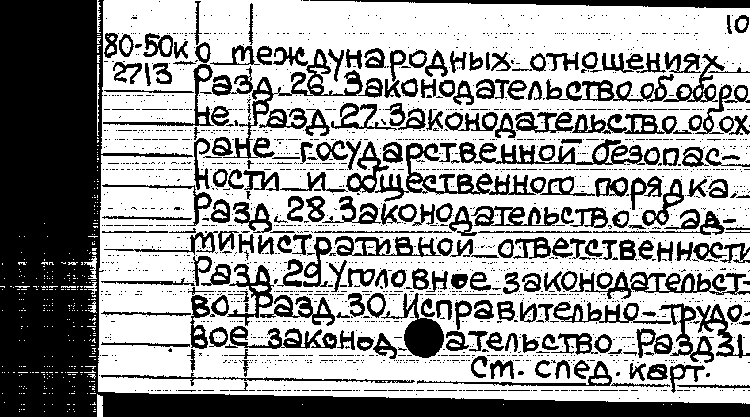 10
80-50к о международных отношениях.
2713 Разд. 26. Законодательство об оборо
не. Разд. 27. Законодательство об ох
ране государственной безопас-
ности и общественного порядка.
Разд. 28. Законодательство об ад-
министративной ответственности
Разд. 29. Уголовное законодательст-
во. Разд. 30. Исправительно-трудо-
вое законодательство. Разд 31
См. след. карт.